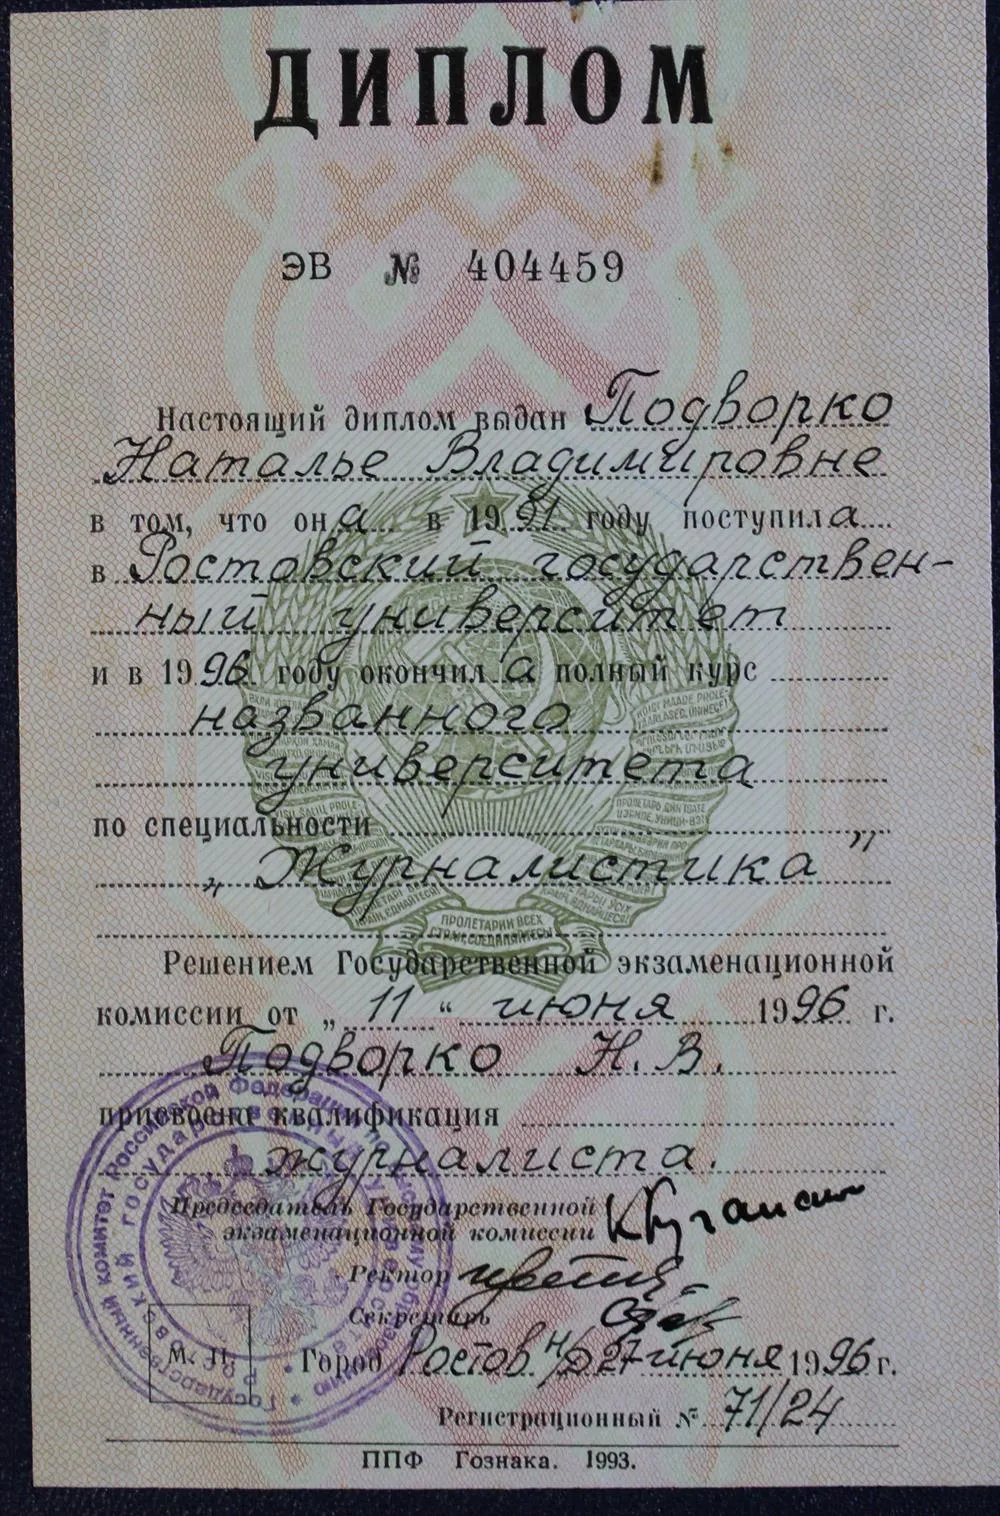 ДИПЛОМ
ЭВ № 404459
Настоящий диплом выдан Подворко
Наталье Владимировне
в том, что она в 1991 году поступила
в Ростовский государствен-
ный университет
и в 1996 году окончила полный курс
названного
университета
по специальности
„Журналистика”
ПРОЛЕТАРИИ ВСЕХ
СТРАН, СОЕДИНЯЙТЕСЬ
Решением Государственной экзаменационной
комиссии от „11“ июня 1996 г.
Подворко Н. В.
присвоена квалификация
журналиста.
Председатель Государственной
экзаменационной комиссии
Ректор
Секретарь
М. П.
Город Ростов н/Д 27 июня 1996 г.
Регистрационный № 71/24
ППФ Гознака. 1993.